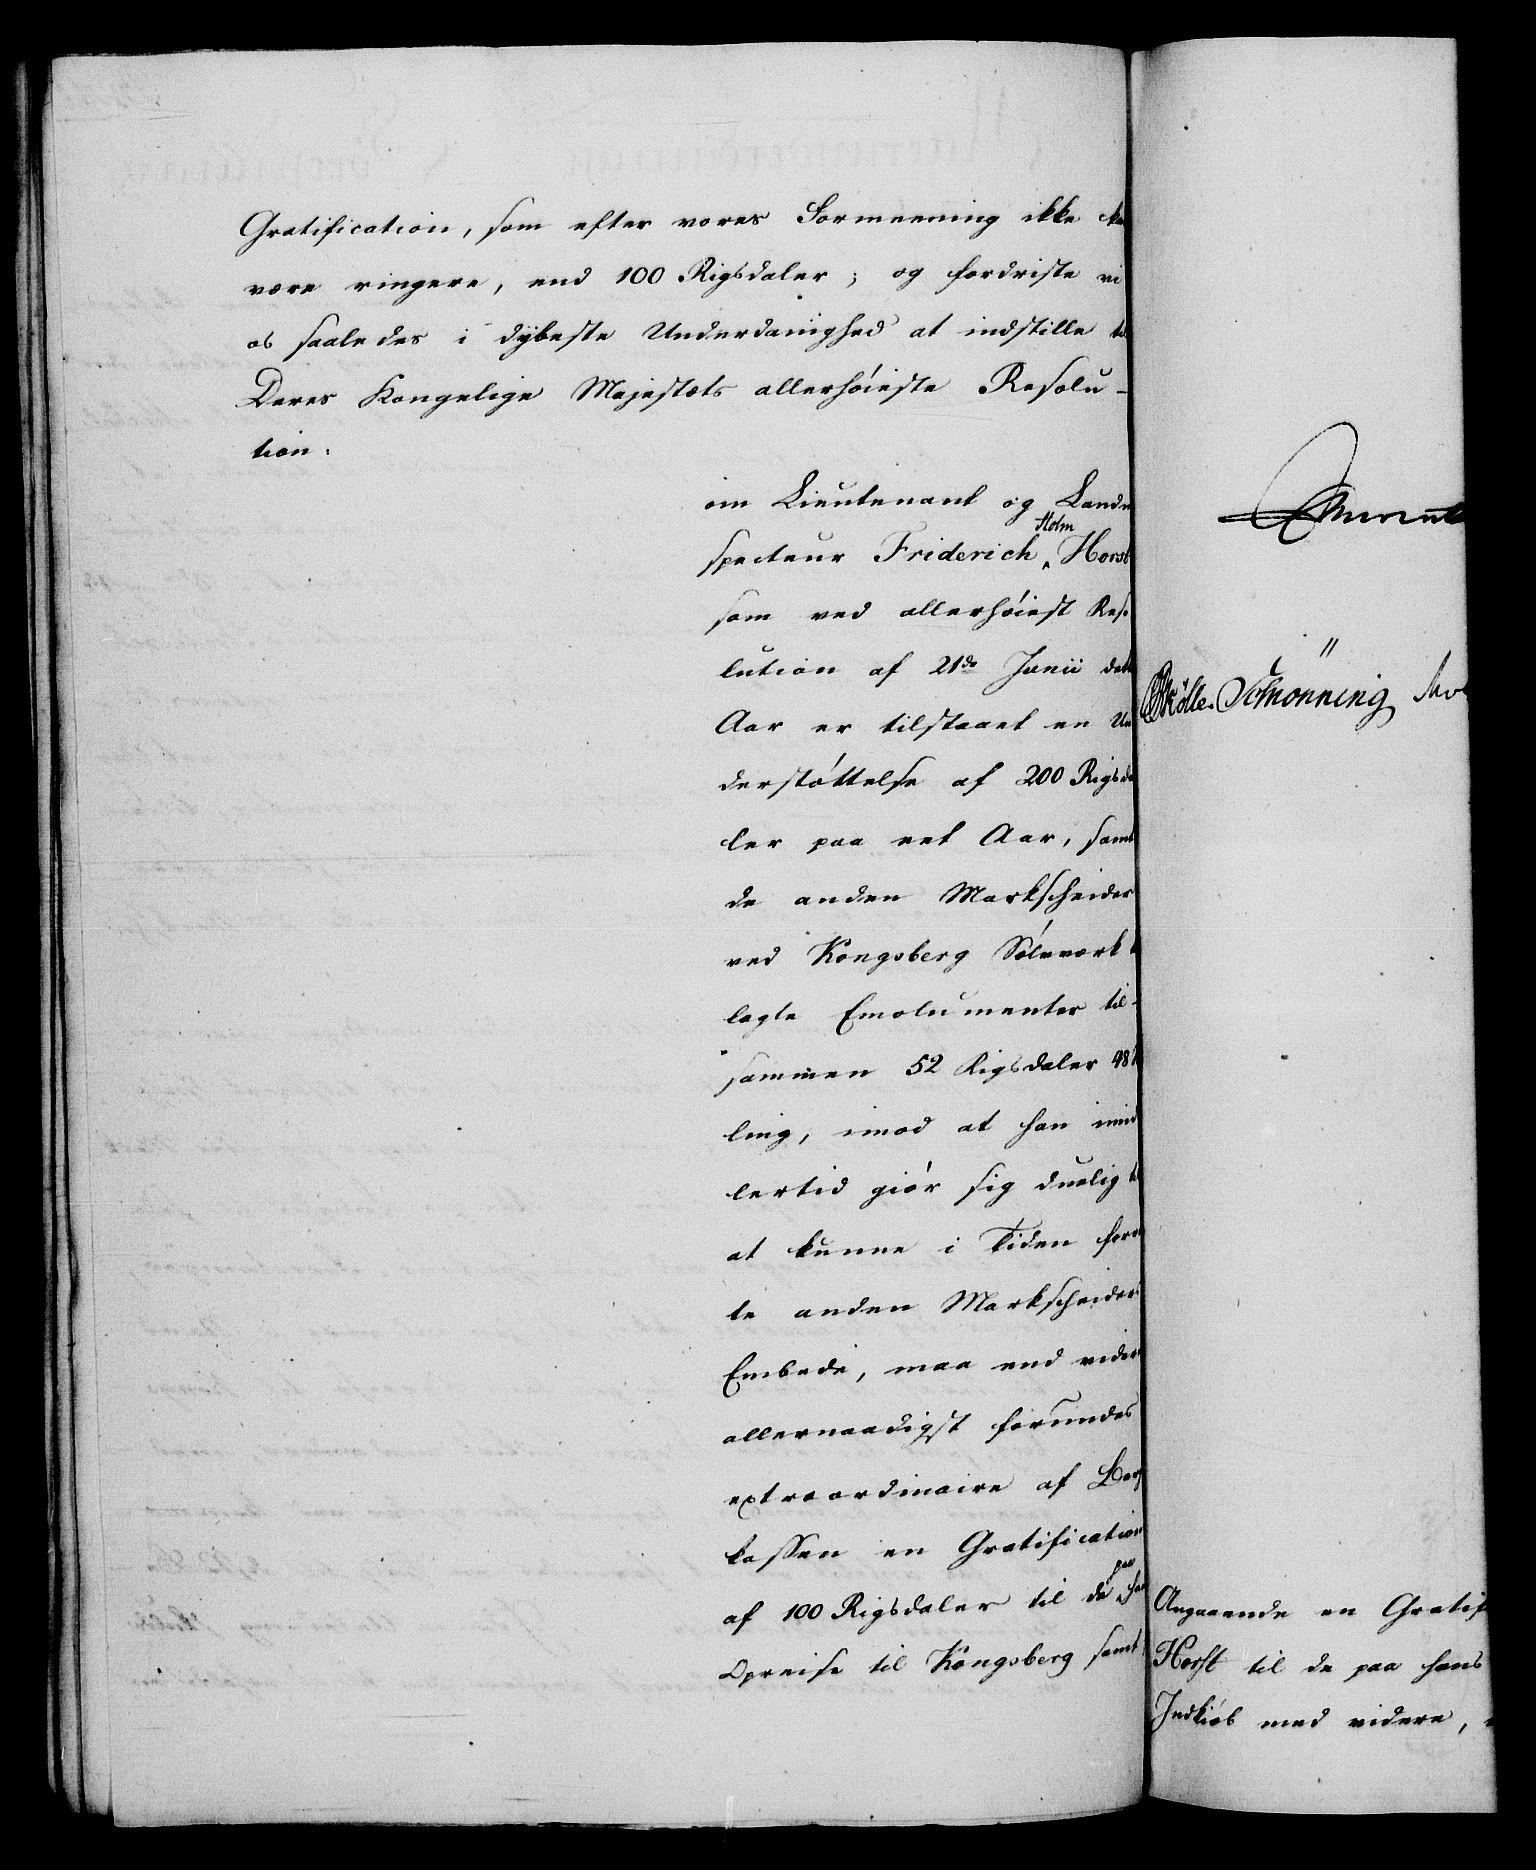 Gratification, som efter vores Formeening ikke
være ringere, end 100 Rigsdaler; og fordriste vi
os saaledes i dÿbeste Underdanighed at indstille
Deres Kongelige Majestæts allerhöieste Resolu-
tion:
om Lieutenant og
specteur Friderich Holm Horst
som ved allerhöiest Reso
lution af 21de Junii dette
Aar er tilstaaet en Un
derstöttelse af 200 Rigsda
ler paa eet Aar, samt
de anden Markscheider
ved Kongsberg Sölvværk
lagte Emolumenter til-
sammen 52 Rigsdaler 48
ling, imod at han imid
lertid giör sig duelig
at kunne i Tiden
te anden Markscheider
Embede, maa end videre
allernaadigst forundes
extraordinaire af Berg
kassen en Gratification
af 100 Rigsdaler til de paa
Opreise til Kongsberg samt
Schønning
Angaaende en Gratif
Horst til de paa hans
Indkiöb med videre,